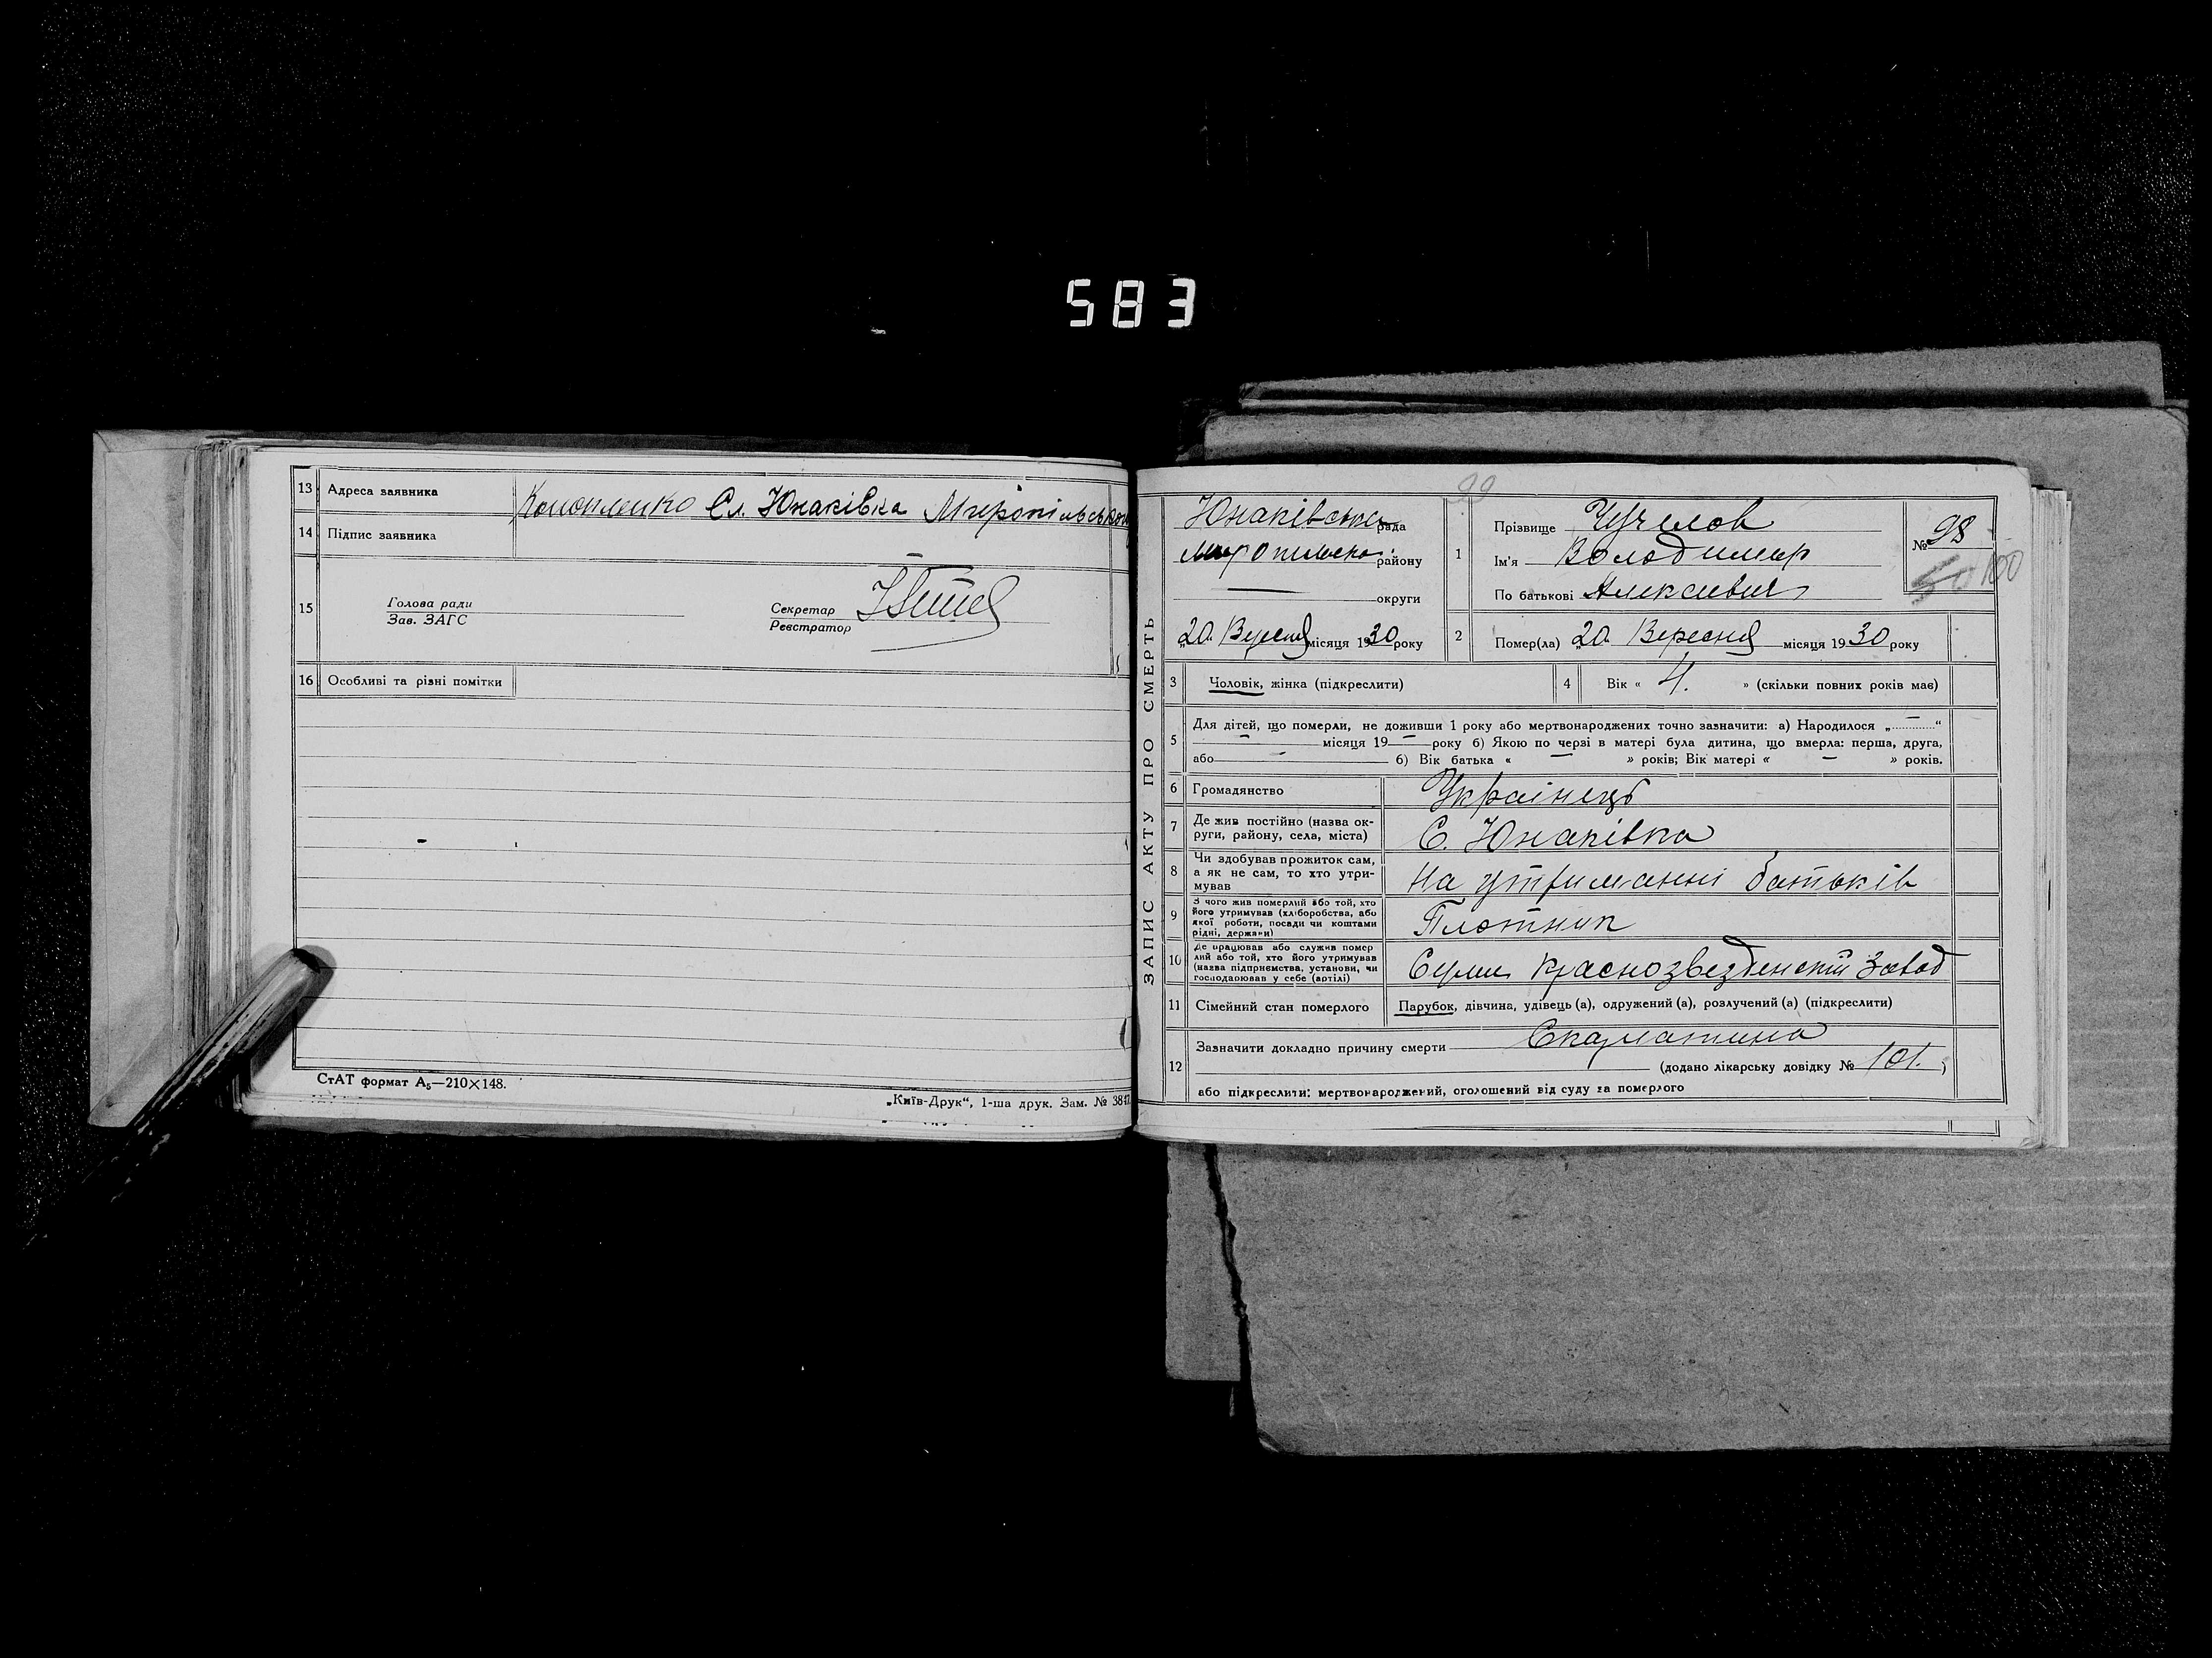 583
13 Адреса заявника
Кононенко Сл. Юнаківка Миропільського
14 Підпис заявника
15 Голова ради
Зав. ЗАГС
Секретар
Реєстратор
16 Особливі та різні помітки
СтАТ формат А₅—210×148.
„Київ-Друк“, 1-ша друк. Зам. №
ЗАПИС АКТУ ПРО СМЕРТЬ
99
Юнаківська рада
Миропільско району
округи
„20 Вересня місяця 1930 року
1 Прізвище Чучелов
Ім'я Володимир
По батькові Алексиевич
№ 98
100
2 Помер(ла) „20 Вересня місяця 1930 року
3 Чоловік, жінка (підкреслити)
4 Вік « 4. » (скільки повних років має)
5 Для дітей, що померли, не доживши 1 року або мертвонароджених точно зазначити: а) Народилося „—“
— місяця 19— року б) Якою по черзі в матері була дитина, що вмерла: перша, друга,
або — б) Вік батька « — » років; Вік матері « — » років.
6 Громадянство Українець
7 Де жив постійно (назва ок-
руги, району, села, міста)
С. Юнаківка
8 Чи здобував прожиток сам,
а як не сам, то хто утри-
мував
На утриманні батьків
9 З чого жив померлий або той, хто
його утримував (хліборобства, або
якої роботи, посади чи коштами
рідні, держави)
Плотник
10 Де працював або служив помер
лий або той, хто його утримував
(назва підприємства, установи, чи
господарював у себе (артілі)
Суми Краснозвезденский Завод
11 Сімейний стан померлого
Парубок, дівчина, удівець (а), одружений (а), розлучений (а) (підкреслити)
12 Зазначити докладно причину смерти Скарлатина
(додано лікарську довідку № 101.)
або підкреслити: мертвонароджений, оголошений від суду за померлого